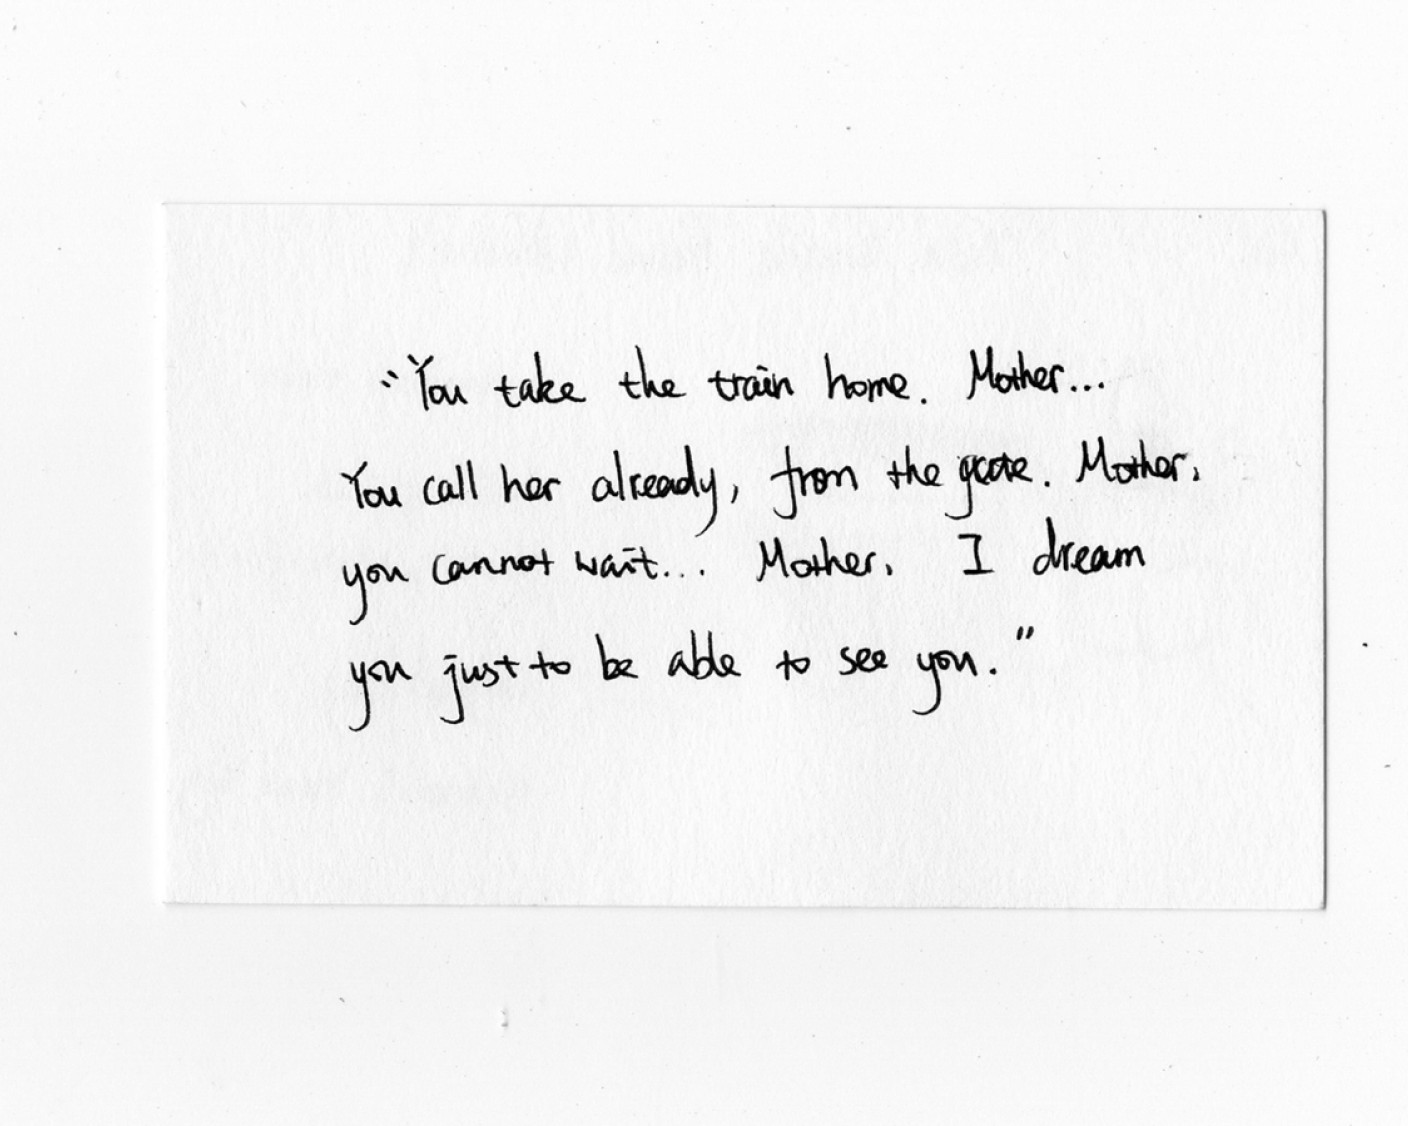 "You take the train home. Mother...
You call her already, from the gate. Mother,
you cannot wait... Mother. I dream
you just to be able to see you."